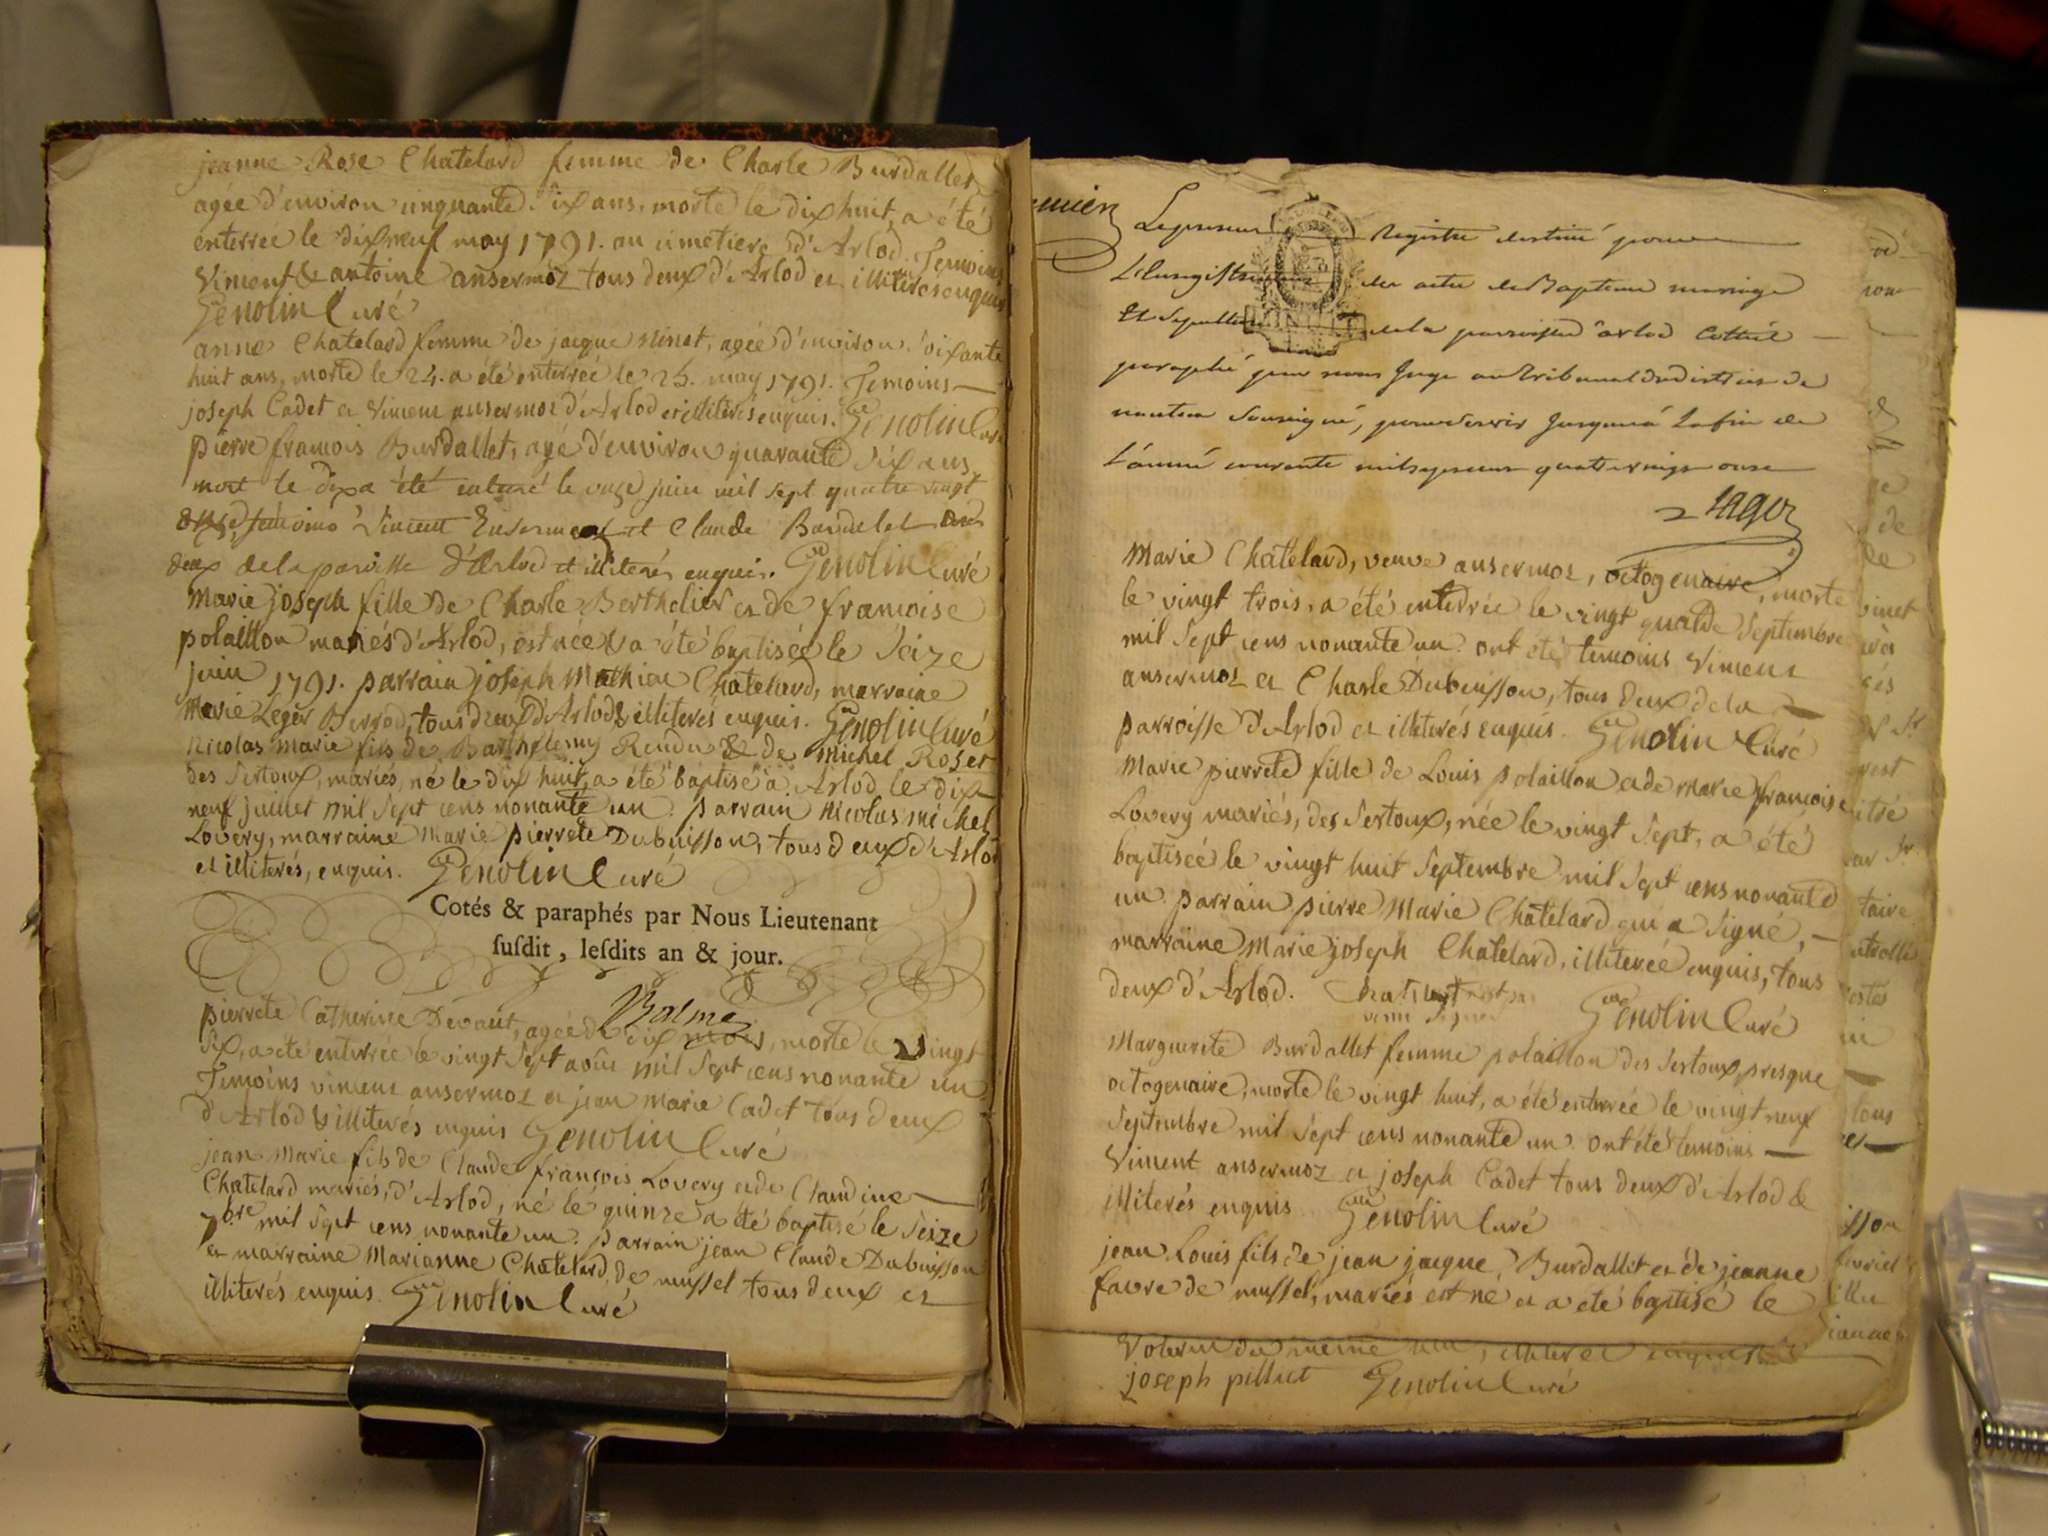 jeanne Rose Chatelard femme de Charle Burdallet
agée d'environ cinquante six ans, morte le dix huit a été
enterrée le dix neuf may 1791. au cimetiere d'Arlod. Temoins
Vincent & antoine ansermoz tous deux d'Arlod et illiterés enquis
Genolin Curé
anne Chatelard femme de jacque ninet, agée d'environ soixante
huit ans, morte le 24. a été enterrée le 25. may 1791. Temoins
joseph Cadet et Vincent ansermoz d'Arlod et illiterés enquis. Genolin Curé
pierre francois Burdallet, agé d'environ quarante six ans
mort le dix a été enterré le onze juin mil sept quatre vingt
onze, temoins Vincent Ensermoz et Claude Burdalet tous
deux de la paroisse d'Arlod et illiterés enquis. Genolin Curé
Marie joseph fille de Charle Berthelier et de francoise
polaillon mariés d'Arlod, est née & a été baptisée le seize
juin 1791. parrain joseph Mathieu Chatelard, marraine
Marie Leger Berrod, tous deux d'Arlod & illiterés enquis. Genolin Curé
Nicolas Marie fils de Barthelemy Rendu & de Michel Roset
des Sertoux, mariés, né le dix huit, a été baptisé a Arlod le dix
neuf juillet mil sept cens nonante un. parrain Nicolas michel
Lovery, marraine Marie pierrete Dubuisson, tous deux d'Arlod
et illiterés, enquis. Genolin Curé
Cotés & paraphés par Nous Lieutenant
ſuſdit, leſdits an & jour.
Balme
pierrete Catherine Devaut, agée de dix mois, morte le vingt
six, a été enterrée le vingt sept août mil sept cens nonante un
Temoins vincent ansermoz et jean marie Cadet tous deux
d'Arlod & illiterés enquis Genolin Curé
jean Marie fils de Claude françois Lovery et de Claudine
Chatelard mariés, d'Arlod, né le quinze a été baptisé le seize
7bre mil sept cens nonante un. parrain jean Claude Dubuisson
et marraine Marianne Chatelard, de mussel tous deux et
illiterés enquis. Genolin Curé
Le present Registre destiné pour
L'Enregistrement des actes de Bapteme mariage
Et Sepulture de la paroisse d'arlod Cotté
paraphé par nous Juge au Tribunal du district de
nantua soussigné, pour servir jusqu'a la fin de
L'année courante mil sept cent quatre vingt onze
Marie Chatelard, veuve ansermoz, octogenaire, morte
le vingt trois, a été enterrée le vingt quatre Septembre
mil sept cens nonante un. ont été temoins Vincent
ansermoz et Charle Dubuisson, tous deux de la
parroisse d'Arlod et illiterés enquis. Genolin Curé
Marie pierrete fille de Louis polaillon et de marie francoise
Lovery mariés, des Sertoux, née le vingt sept, a été
baptisée le vingt huit Septembre mil sept cens nonante
un. parrain pierre Marie Chatelard qui a signé,
marraine Marie joseph Chatelard, illiterée enquis, tous
deux d'Arlod. Genolin Curé
Marguerite Burdallet femme polaillon des Sertoux, presque
octogenaire, morte le vingt huit, a été enterrée le vingt neuf
Septembre mil sept cens nonante un. ont été temoins
Vincent ansermoz et joseph Cadet tous deux d'Arlod &
illiterés enquis. Genolin Curé
jean Louis fils de jean jacque Burdallet et de jeanne
favre de mussel, mariés est né et a été baptisé le
du même lieu, illiteré enquis
joseph pilliet Genolin Curé